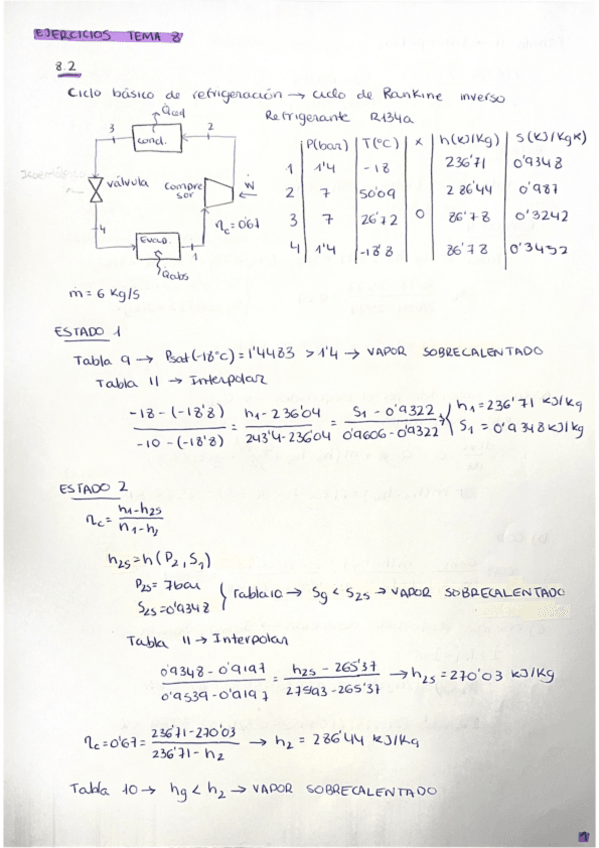 EJERCICIOS TEMA 8
8.2
Ciclo básico de refrigeración → ciclo de Rankine inverso
Refrigerante R134a
Q̇ced
3 cond. 2
válvula compresor Ẇ
ηc=0'67
4 evap. 1
Q̇abs
P(bar) T(ºC) x h(kJ/kg) s(kJ/kgK)
1 1'4 -18 236'71 0'9348
2 7 50'09 286'44 0'987
3 7 26'72 0 86'78 0'3242
4 1'4 -18'8 86'78 0'3452
ṁ = 6 kg/s
ESTADO 1
Tabla 9 → Psat(-18ºC) = 1'4483 > 1'4 → VAPOR SOBRECALENTADO
Tabla 11 → Interpolar
-18-(-18'8) / -10-(-18'8) = h1-236'04 / 243'4-236'04 = S1-0'9322 / 0'9606-0'9322 } h1=236'71 kJ/kg
S1=0'9348 kJ/kg
ESTADO 2
ηc = h1-h2s / h1-h2
h2s=h(P2,S1)
P2s=7bar
S2s=0'9348 } Tabla 10 → Sg < S2s → VAPOR SOBRECALENTADO
Tabla 11 → Interpolar
0'9348-0'9197 / 0'9539-0'9197 = h2s-265'37 / 275'93-265'37 → h2s=270'03 kJ/kg
ηc=0'67= 236'71-270'03 / 236'71-h2 → h2 = 286'44 kJ/kg
Tabla 10 → hg < h2 → VAPOR SOBRECALENTADO
1